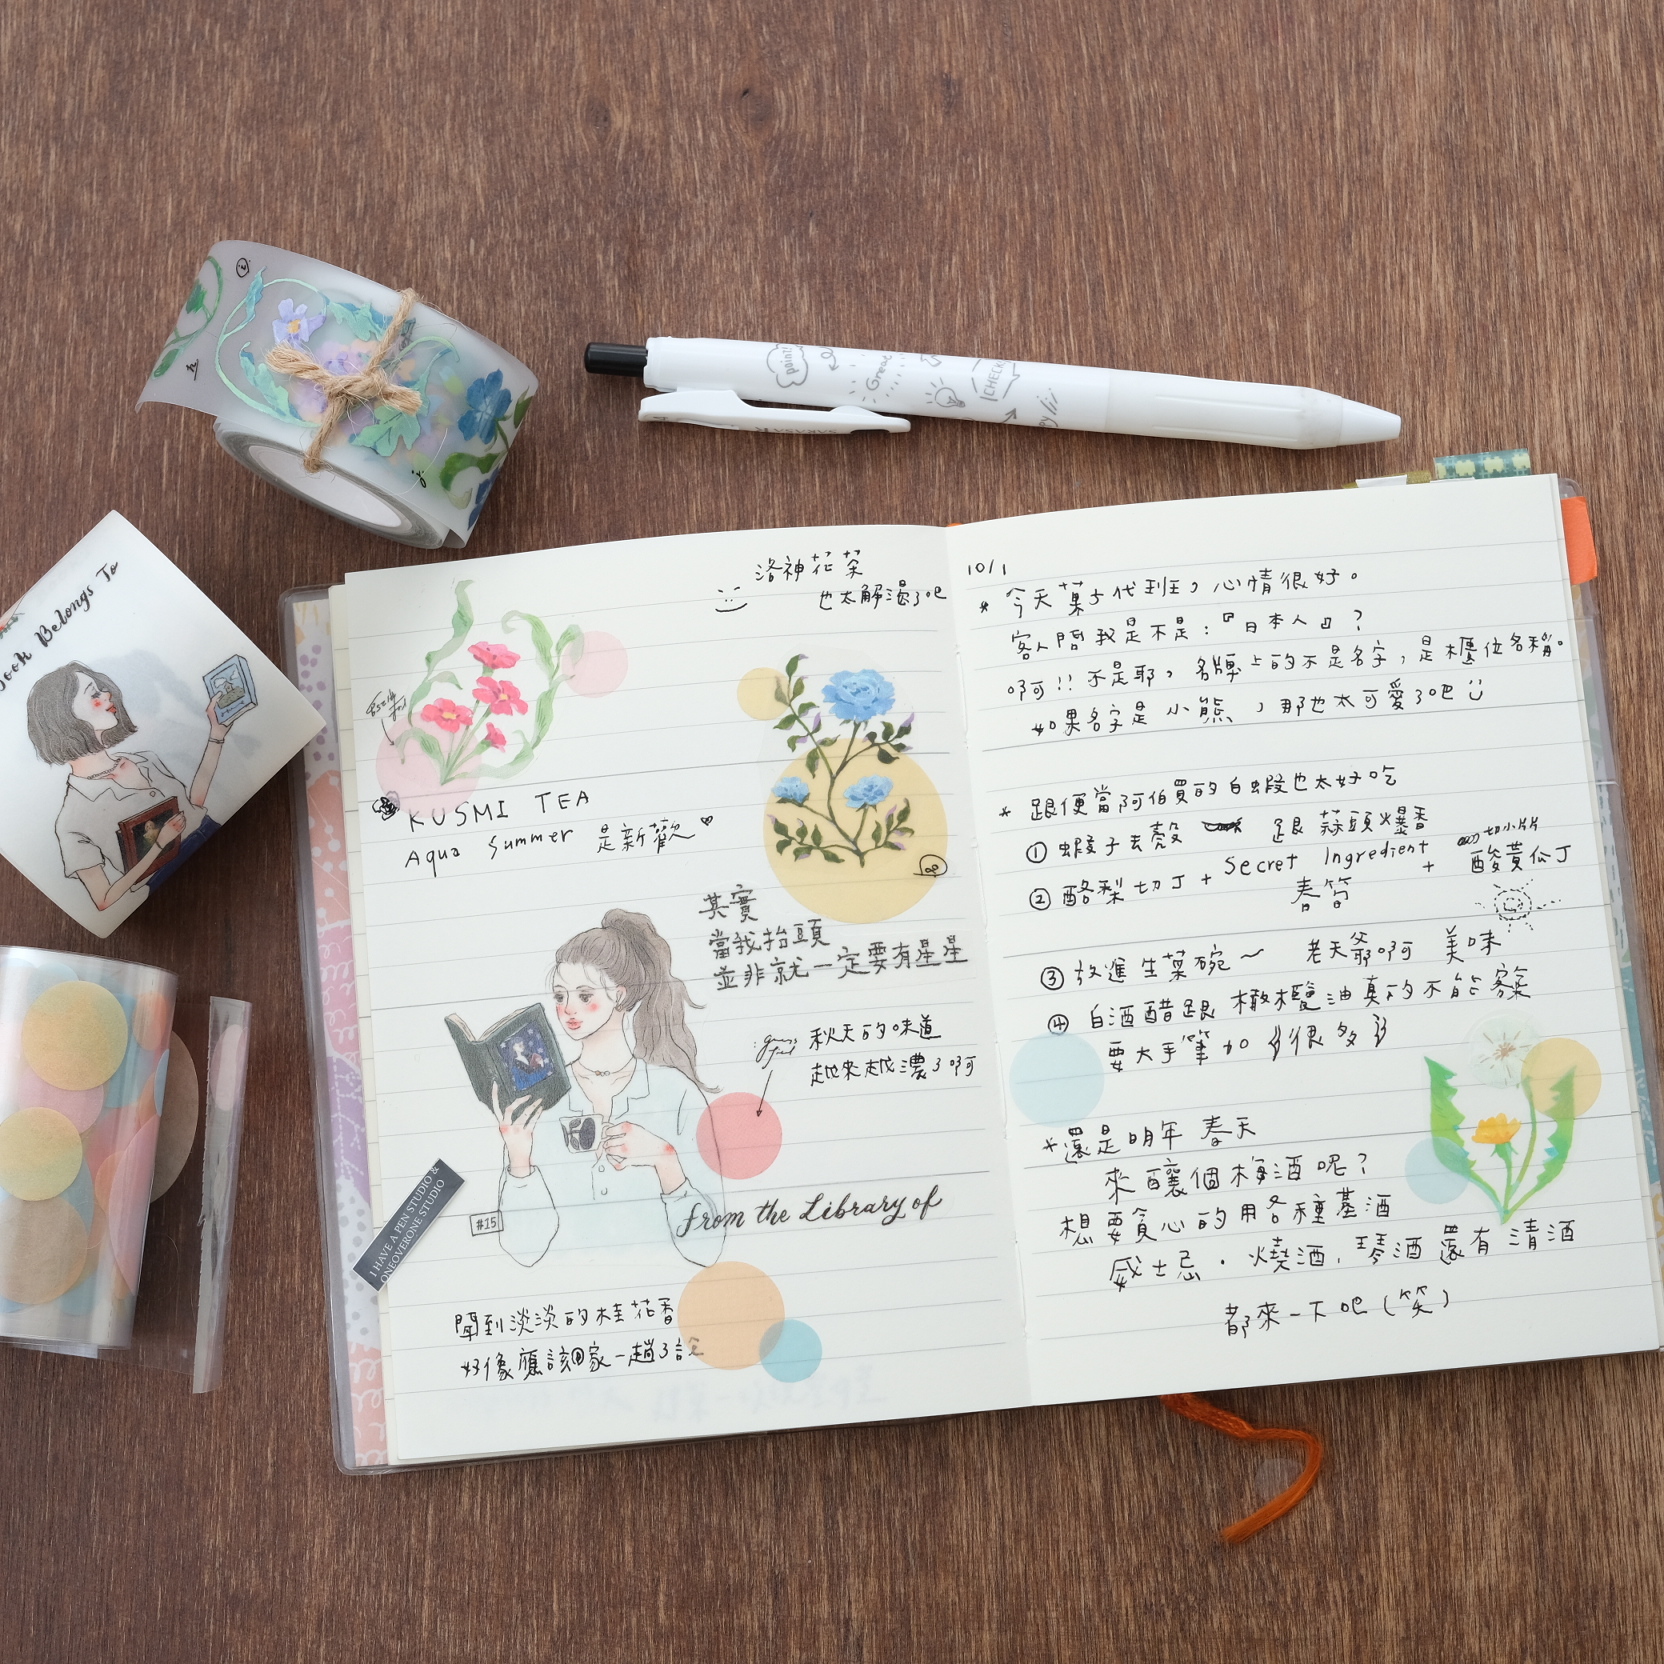 Book Belongs To
point!
Great
CHECK
SARASA R
洛神花茶
也太解渴了吧
KUSMI TEA
Aqua Summer 是新歡♡
其實
當我抬頭
並非就一定要有星星
秋天的味道
越來越濃了啊
#15
from the Library of
I HAVE A PEN STUDIO &
ONEOVERONE STUDIO
聞到淡淡的桂花香
好像應該回家一趟了說
10/1
* 今天菓子代班,心情很好。
客人問我是不是:『日本人』?
啊!! 不是耶,名牌上的不是名字,是櫃位名稱。
如果名字是小熊,那也太可愛了吧
* 跟便當阿伯買的白蝦也太好吃
① 蝦子去殼 跟 蒜頭爆香
② 酪梨切丁 + Secret Ingredient + 酸黃瓜丁
切小片片
春筍
③ 放進生菜碗~ 老天爺啊 美味
④ 白酒醋跟橄欖油真的不能客氣
要大手筆加 {很多}
*還是明年春天
來釀個梅酒呢?
想要貪心的用各種基酒
威士忌.燒酒,琴酒還有清酒
都來一下吧(笑)